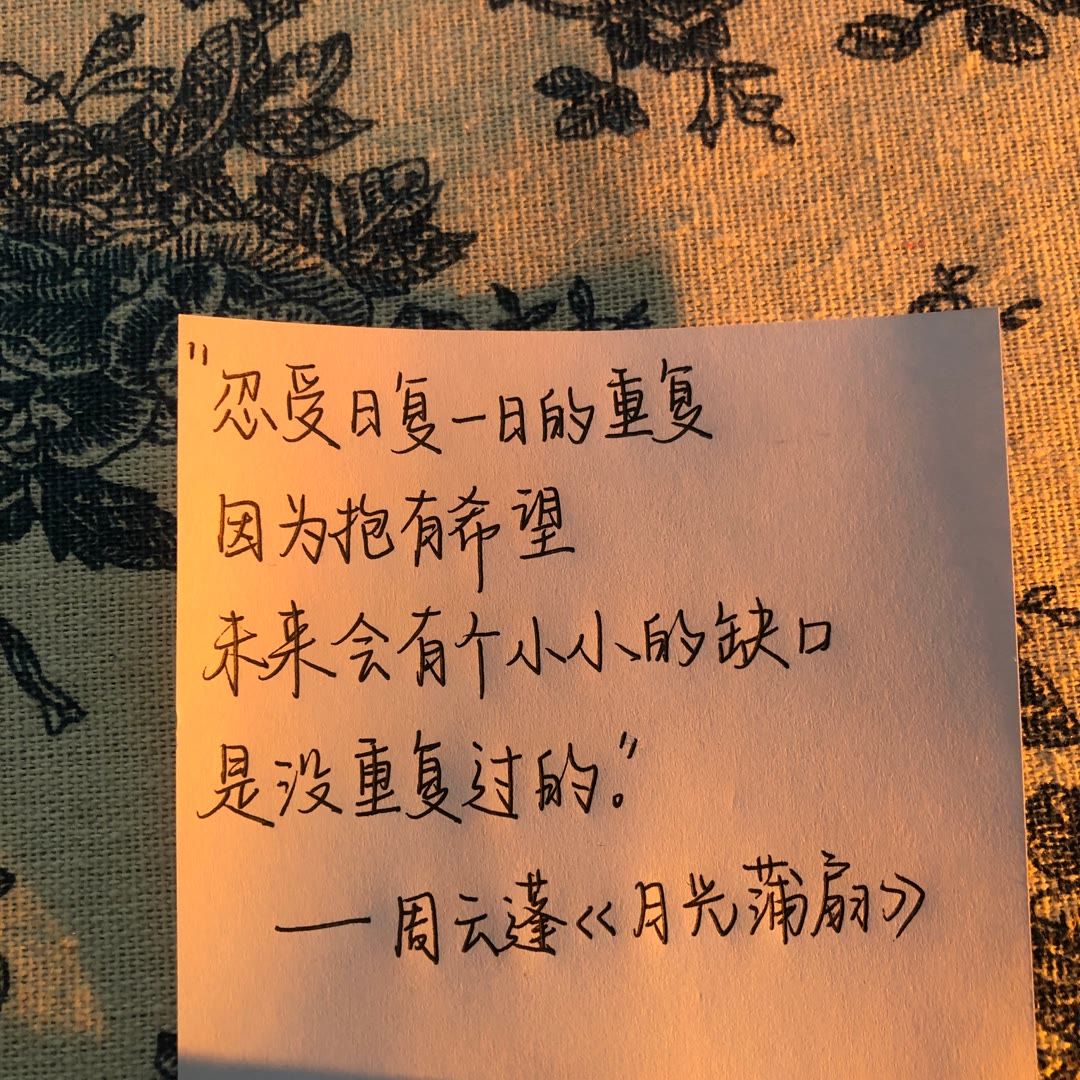 "忍受日复一日的重复
因为抱有希望
未来会有个小小的缺口
是没重复过的。"
——周云蓬《月光蒲扇》